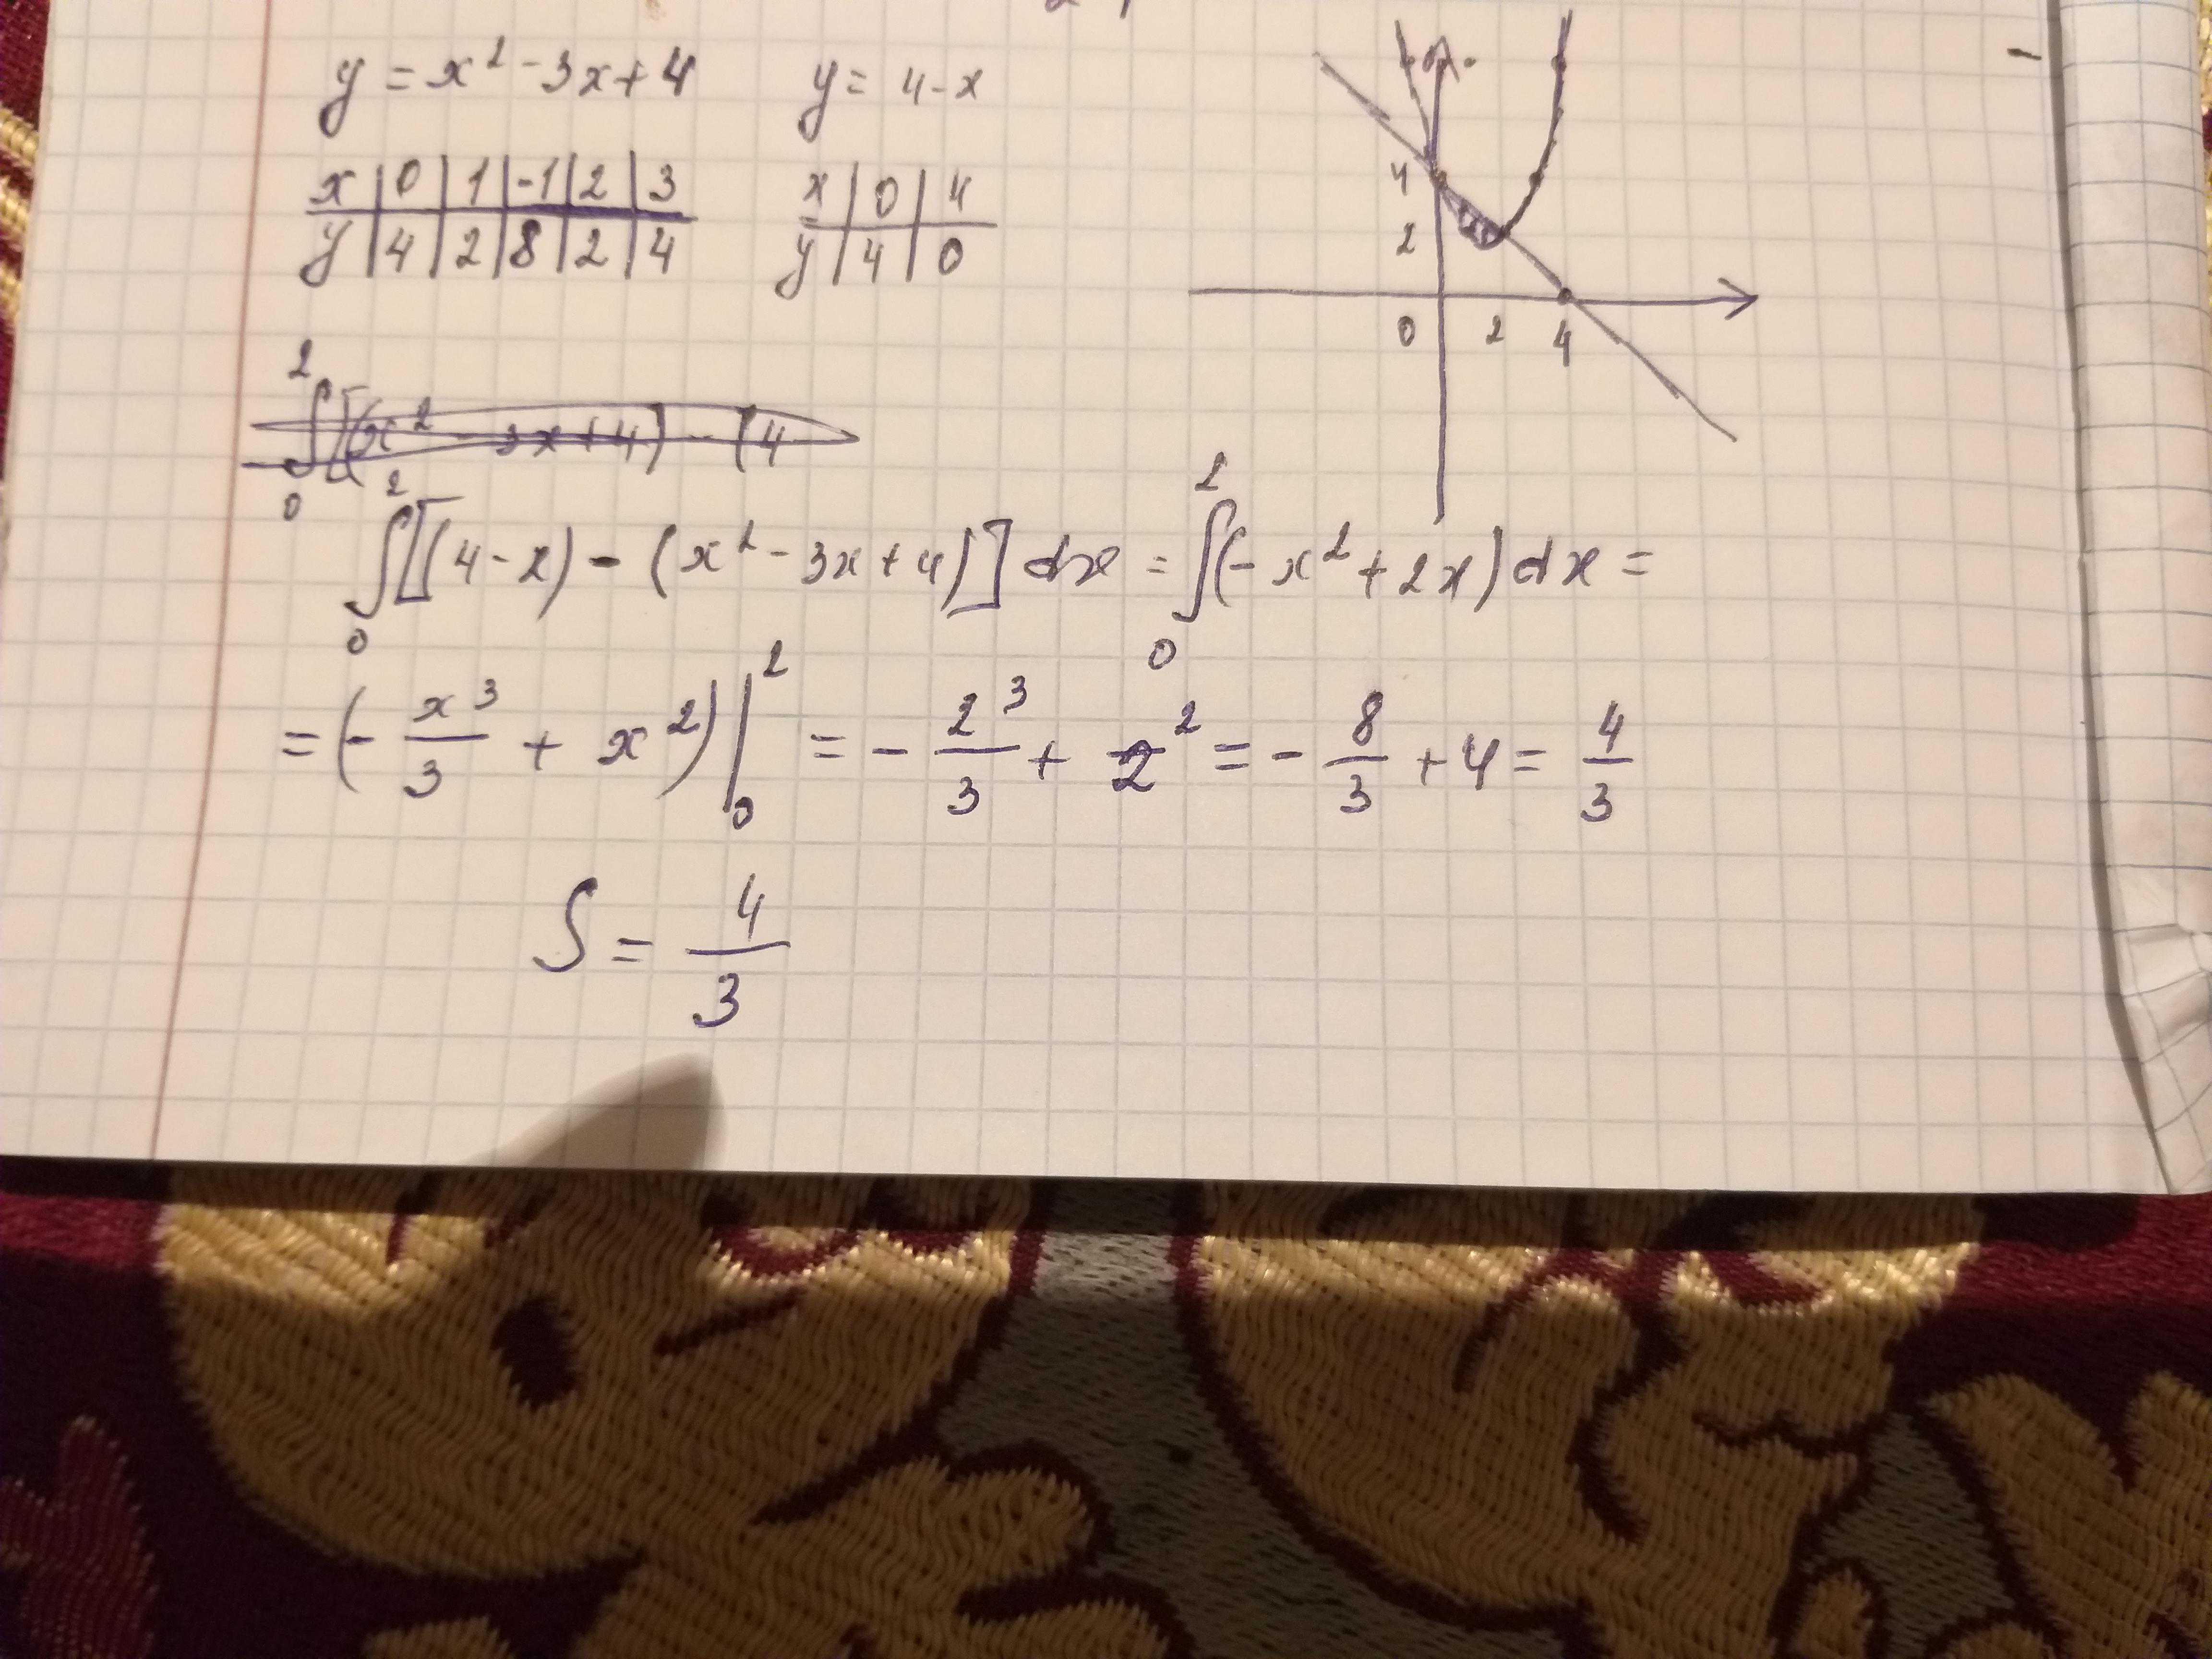 y = x² - 3x + 4 y = 4 - x
x | 0 | 1 | -1 | 2 | 3 x | 0 | 4
y | 4 | 2 | 8 | 2 | 4 y | 4 | 0
4
2
0 2 4
∫₀² [(x² - 3x + 4) - (4
∫₀² [(4 - x) - (x² - 3x + 4)] dx = ∫₀² (- x² + 2x) dx =
= (- x³/3 + x²) |₀² = - 2³/3 + 2² = - 8/3 + 4 = 4/3
S = 4/3